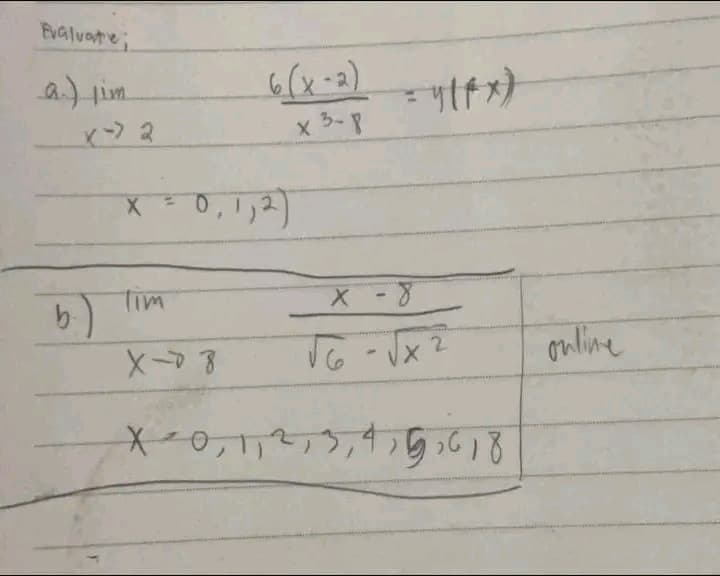 Evaluate;
a.) lim 6(x-2) = y(f x)
x→2 x³-8
x = 0,1,2)
b.) lim x - 8
x→8 √6 - √x² online
x = 0,1,2,3,4,5,6,8